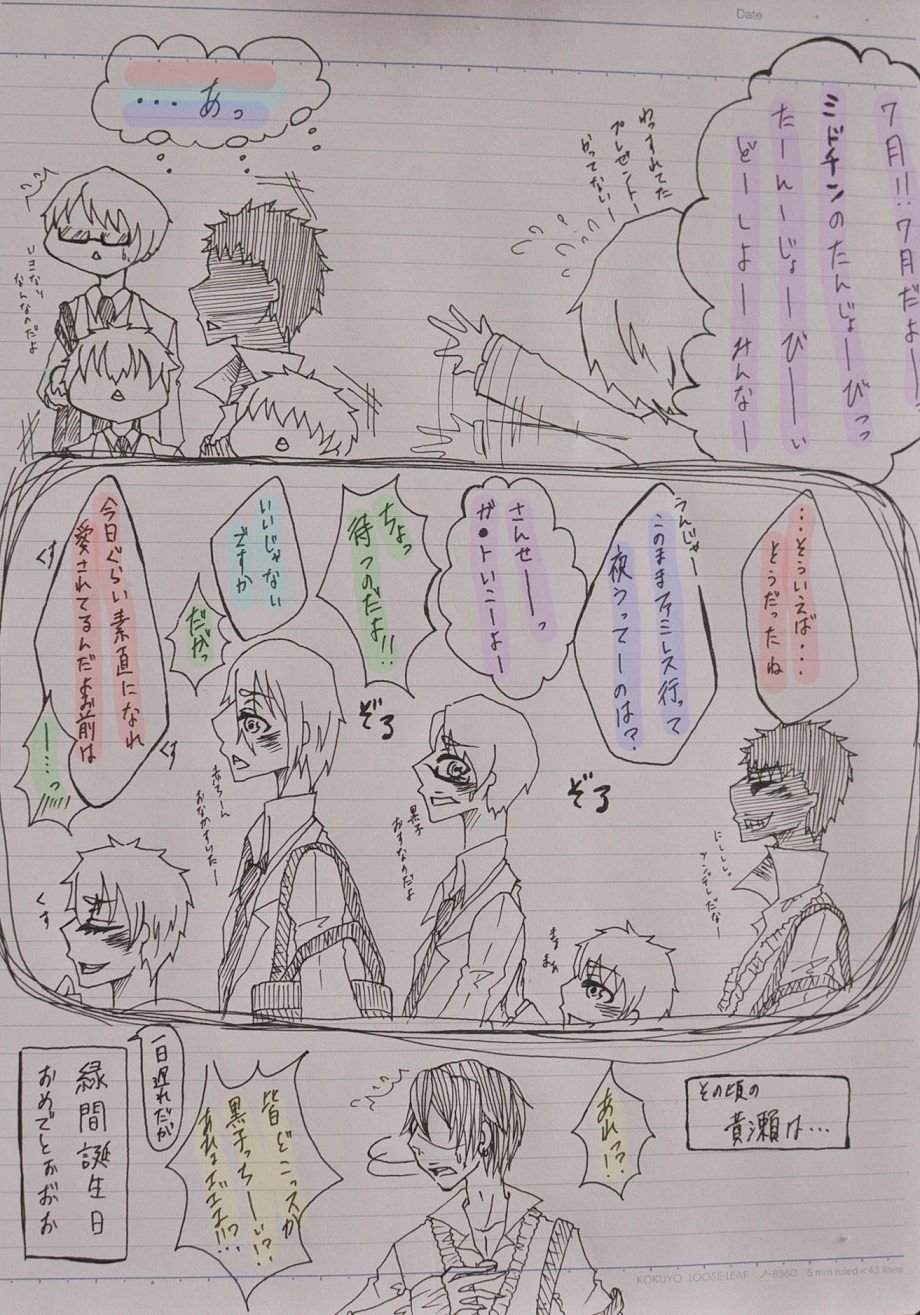 Date
7月!!7月だよー
ミドチンのたんじょーびっっ
たーんーじょーびーーい
どーしよーーみんなー
わっすれてた
プレゼントー
かってないー
...あっ
いきなり
なんなのだよ
...そういえば...
そうだったね
うんじゃー
このままファミレス行って
夜うってーのは?
さんせーーっ
ガ●トいこーよー
ちょっ
待つのだよ!!
いいじゃない
ですか
だがっ
今日ぐらい素直になれ
愛されてるんだよお前は
くす
くす
ー...っ
くす
ぞろ
ぞろ
赤ちーん
おなかすいたー
黒子
おすなのだよ
まぁ
まぁ
にししし。
ツンデレだなー
その頃の
黄瀬は...
あれっ??
皆どこっスか
黒子っちーぃ!?
一日遅れだが
緑間誕生日
おめでとおおお
KOKUYO LOOSE-LEAF ノ-836C 5mm ruled×43 lines